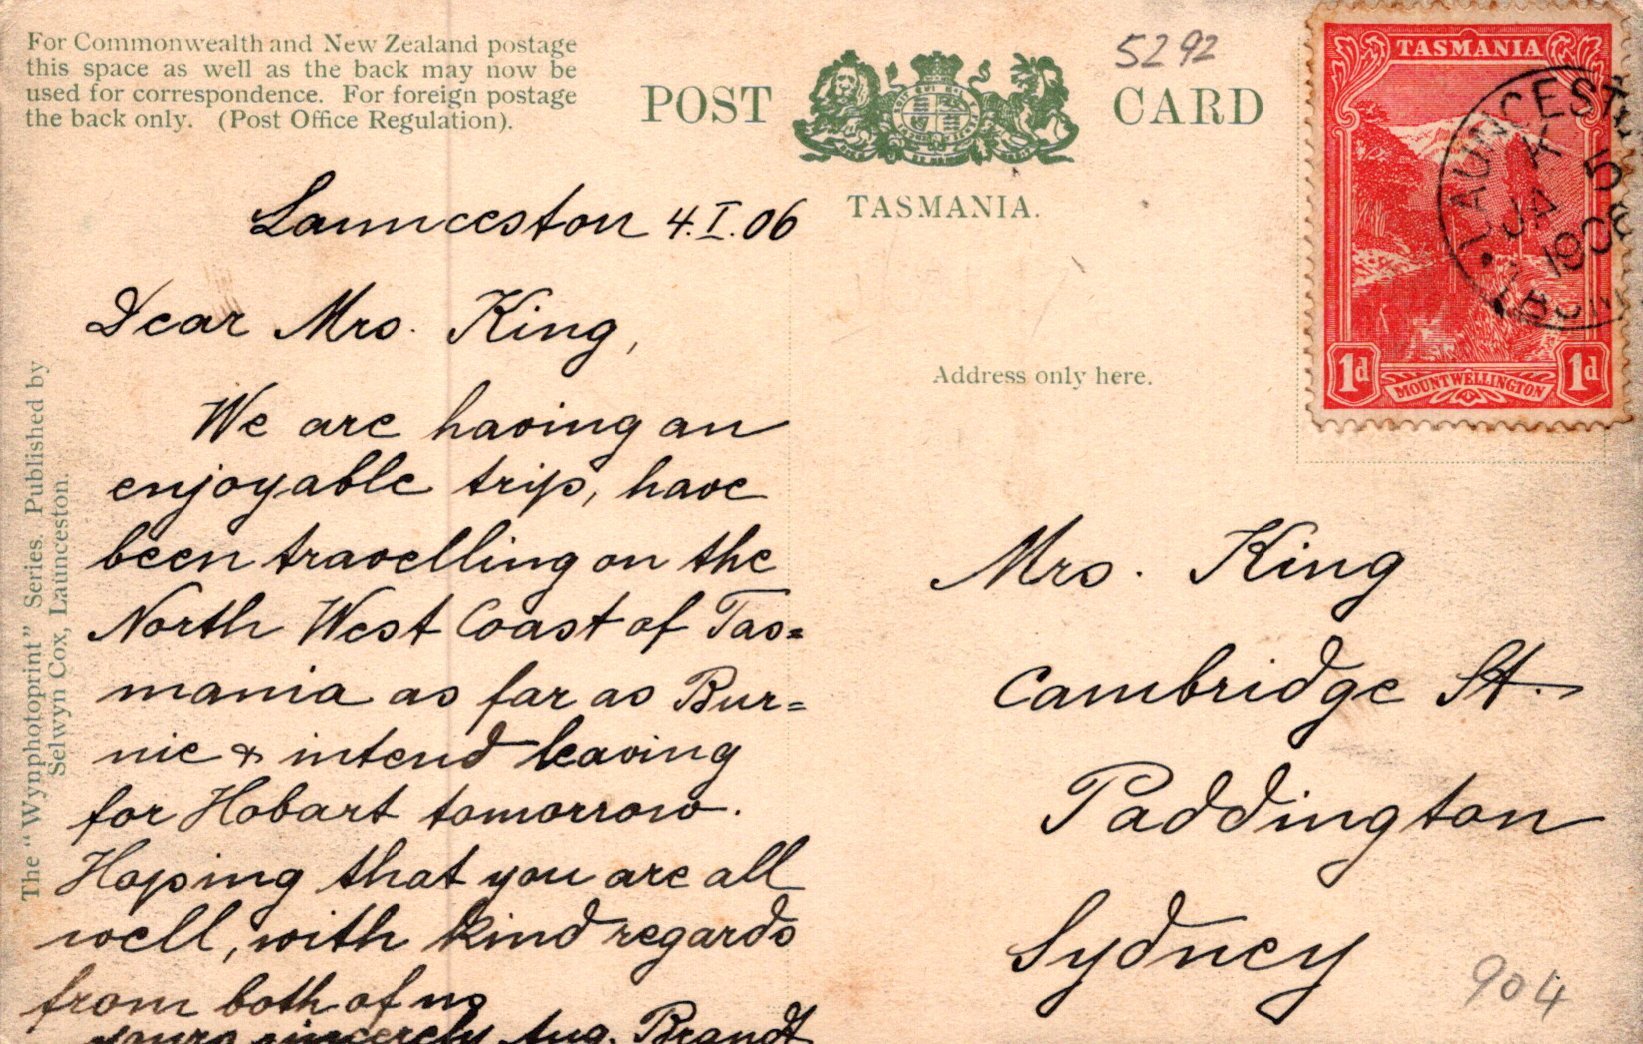 For Commonwealth and New Zealand postage
this space as well as the back may now be
used for correspondence. For foreign postage
the back only. (Post Office Regulation).
POST CARD
5292
TASMANIA.
TASMANIA
1d 1d
MOUNT WELLINGTON
LAUNCESTO
K
5
JA
190
TASM
Launceston 4.I.06
Dear Mrs. King,
We are having an
enjoyable trip, have
been travelling on the
North West Coast of Tas=
mania as far as Bur=
nie & intend leaving
for Hobart tomorrow.
Hoping that you are all
well, with kind regards
from both of us
yours sincerely Aug. Brandt
The "Wynphotoprint" Series. Published by
Selwyn Cox, Launceston.
Address only here.
Mrs. King
Cambridge St.
Paddington
Sydney
904